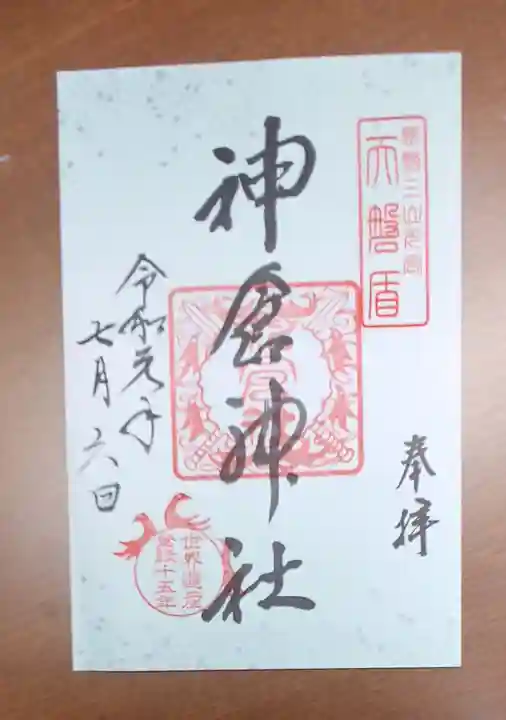 天磐盾
奉拝
神倉神社
令和元年
七月六日
世界遺産
登録十五年